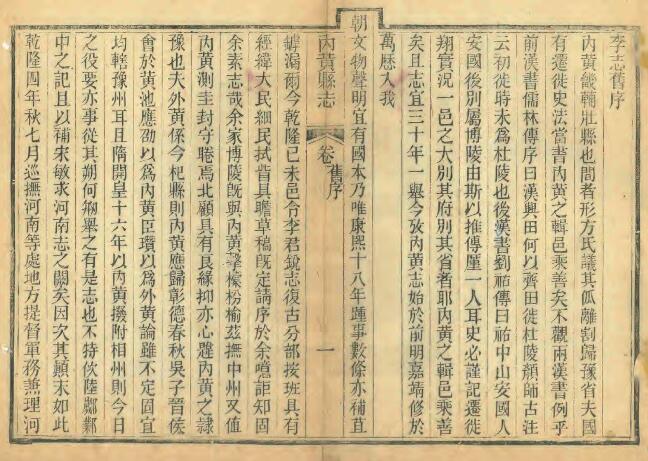 李志舊序
內黃畿輔壯縣也間者形方氏議其㧓離割歸豫省夫國
有遷徙史法當書內黃之輯邑乘善矣不觀兩漢書例乎
前漢書儒林傳序曰漢興田何以齊田徙杜陵顏師古注
云初徙時未爲杜陵也後漢書劉祐傳曰祐中山安國人
安國後別屬博陵由斯以推傳厪一人耳史必謹記遷徙
翔實況一邑之大別其府別其省者耶內黃之輯邑乘善
矣且志宜三十年一舉今攷內黃志始於前明嘉靖修於
萬厯入我
朝文物聲明宜有國本乃唯康熙十八年踵事數條亦補苴
內黃縣志
卷舊序
一
罅漏爾今乾隆已未邑令李君銳志復古分部按班具有
經緯大民細民拭眥具瞻草稿旣定請序於余噫詎知固
余素志哉余家博陵旣與內黃擊榛枌榆茲撫中州又值
內黃測圭封守睠焉北顧具有良緣抑亦心韙內黃之隷
豫也夫外黃係今杞縣則內黃應歸彰德春秋吳子晉侯
會於黃池應劭以爲內黃臣瓚以爲外黃論雖不定固宜
均轄豫州耳且隋開皇十六年以內黃撥附相州則今日
之役要亦事從其朔何剏舉之有是志也不特佽陸鄴
中之記且以補宋敏求河南志之闕矣因次其顚末如此
乾隆四年秋七月巡撫河南等處地方提督軍務兼理河